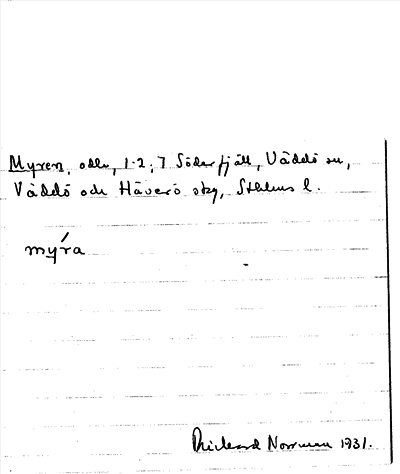 Myren, odlr, 1-2; 7 Söderfjäll, Väddö sn,
Väddö och Häverö skg, Sthlms l.
mýra
Rickard Norrman 1931.